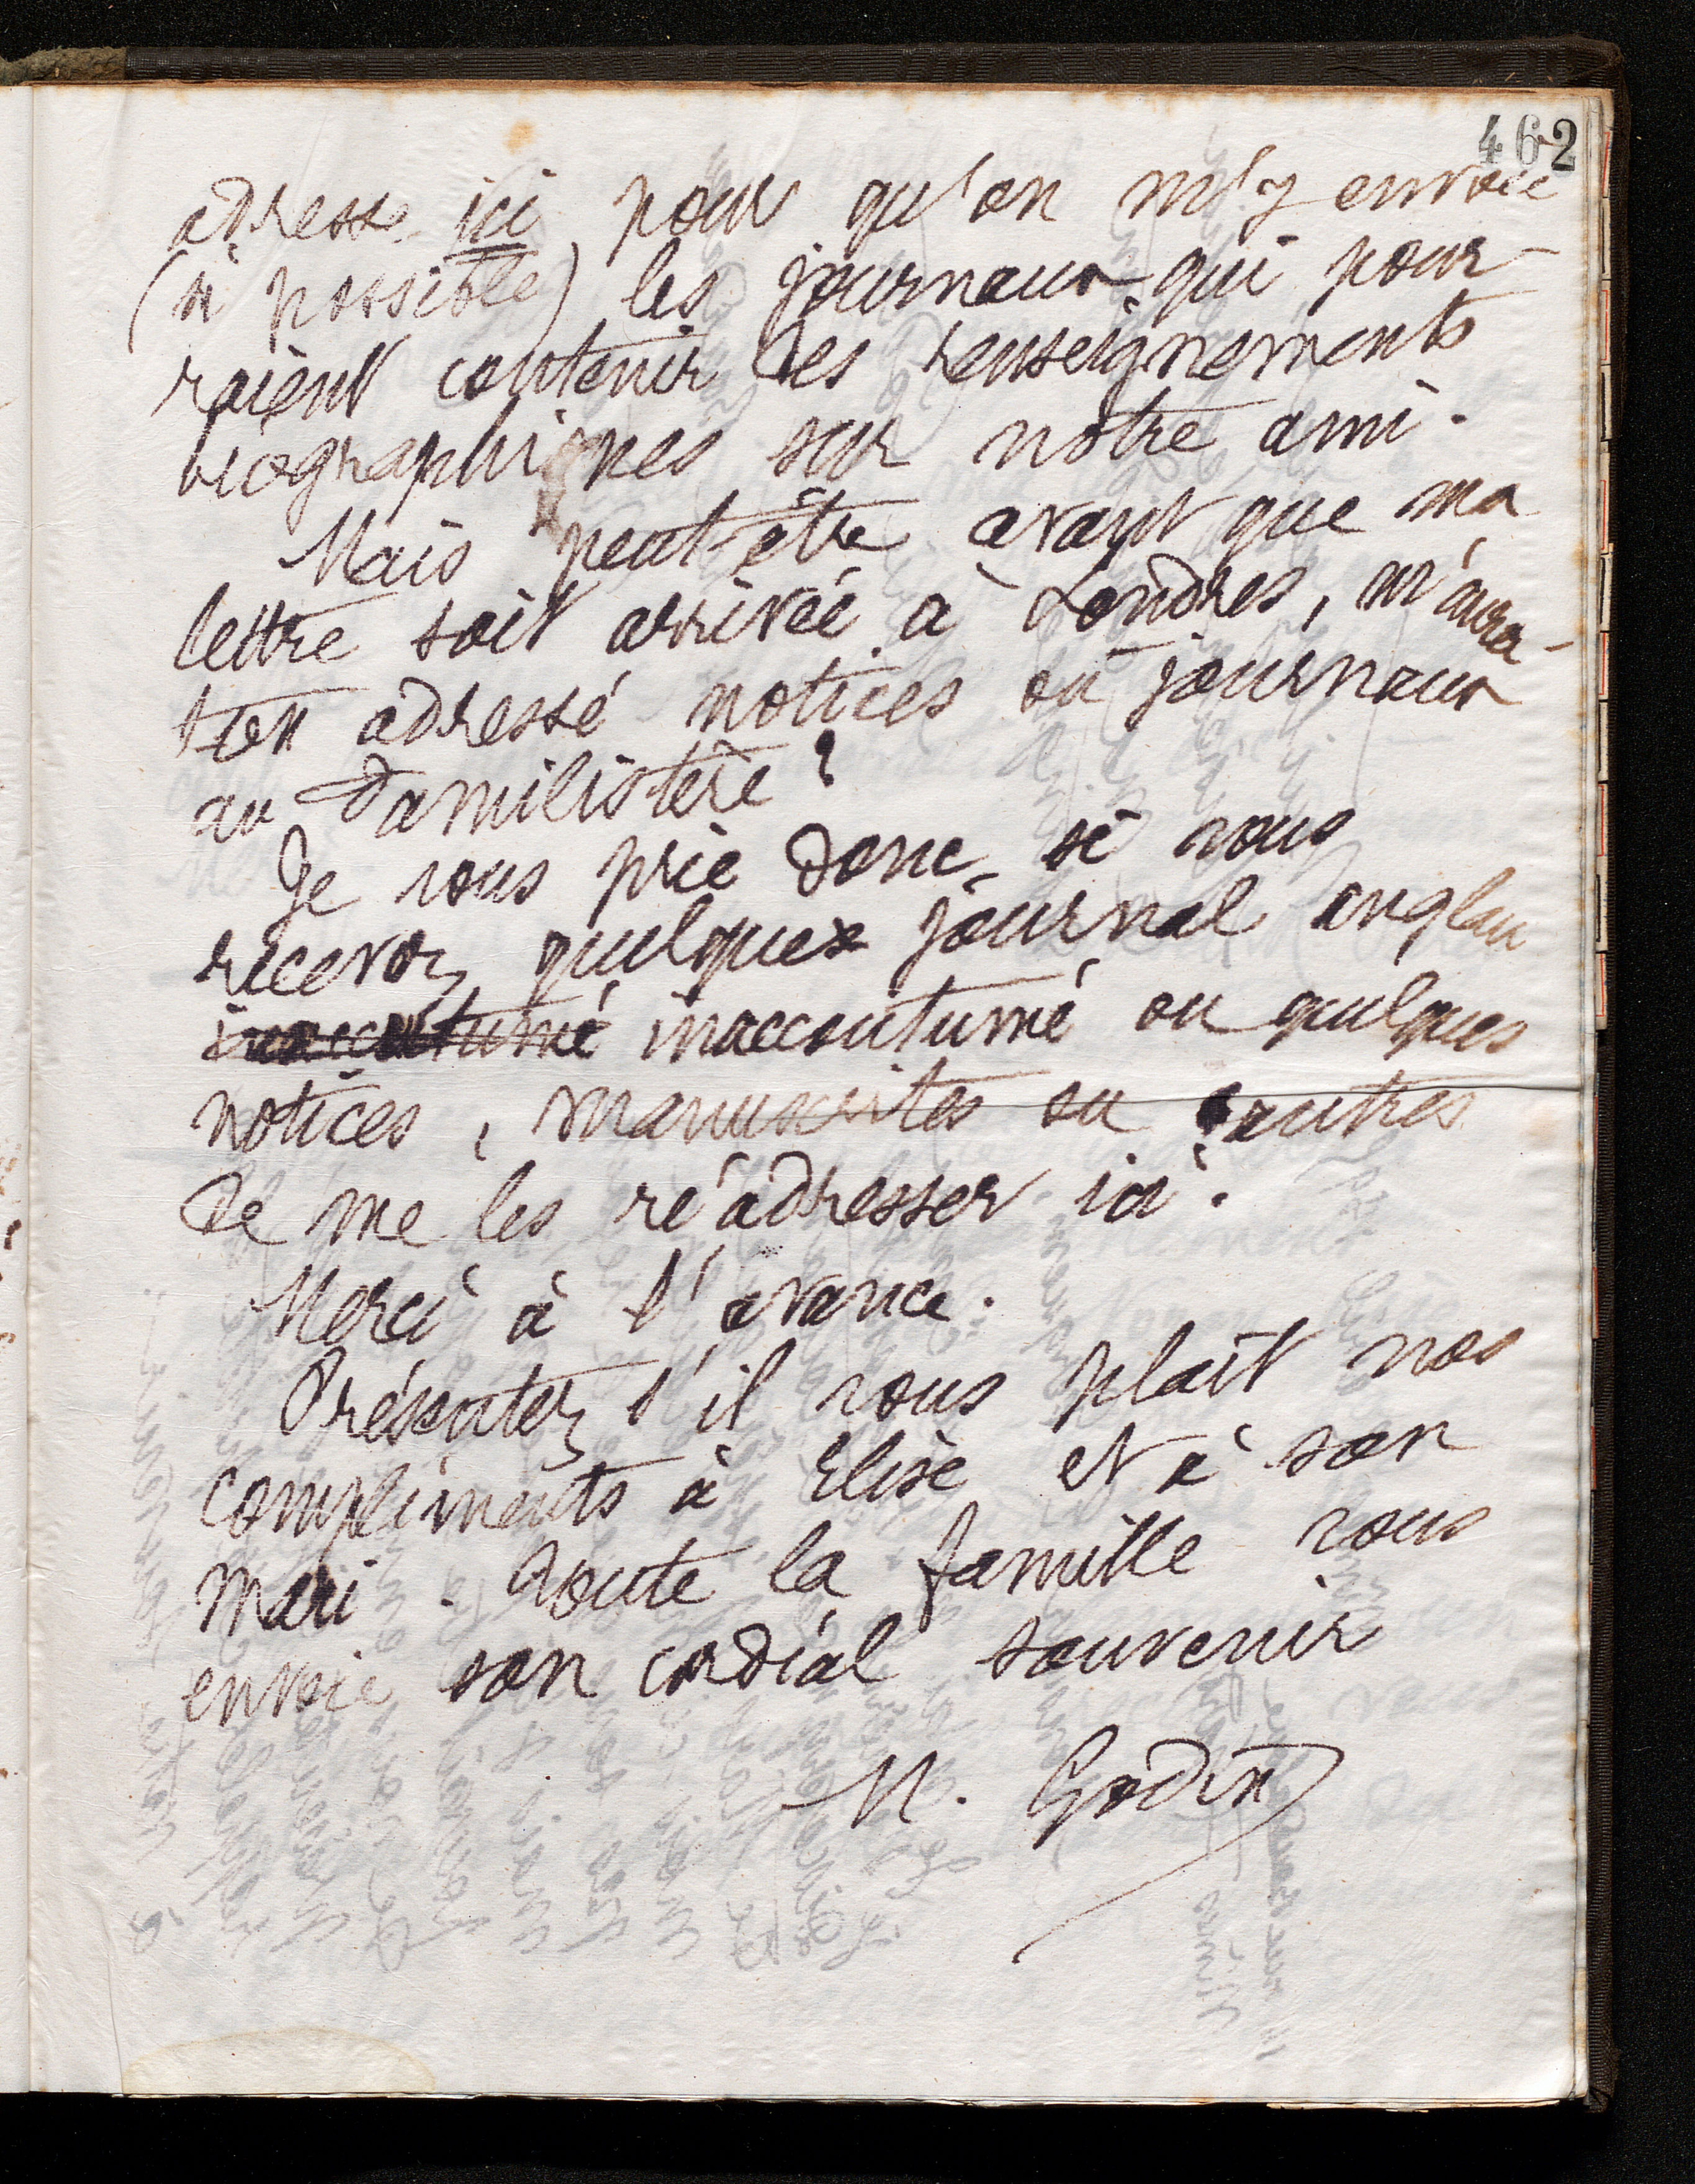 462
adresse ici pour qu'on m'y envoie
(si possible) les journaux qui pour-
raient contenir des renseignements
biographiques sur notre ami.
Mais peut-être avant que ma
lettre soit arrivée à Londres, m'aura-
t-on adressé notices ou journaux
au Familistère?
Je vous prie donc, si vous
recevez quelques journal anglais
inaccoutumé inaccoutumé ou quelques
notices, manuscrites ou autres
de me les réadresser ici.
Merci à l'avance.
Présentez s'il vous plaît nos
compliments à Elise et à son
mari. Toute la famille vous
envoie son cordial souvenir
M. Godin